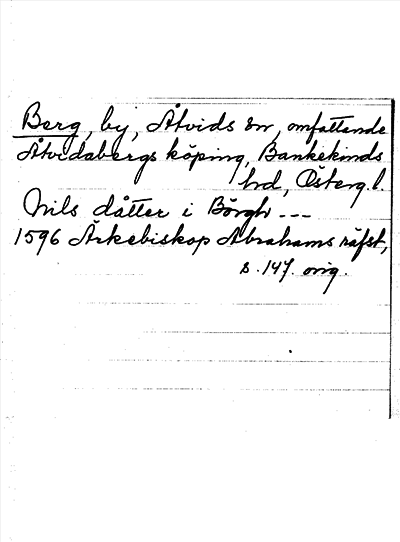 Berg, by, Åtvids sn, omfattande
Åtvidabergs köping, Bankekinds
hd, Österg. l.
Nils dåtter i Börgh ---
1596 Ärkebiskop Abrahams räfst,
s. 147. orig.